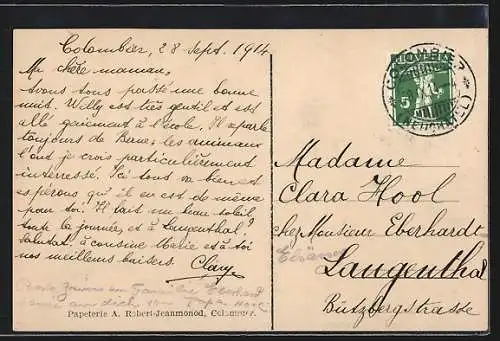 Colombier, 28 sept. 1914
Ma chère maman,
Avons tous passé une bonne
nuit. Willy est très gentil et est
allé gaiement à l'école. Il parle
toujours de Berne; les animaux
l'ont je crois particulièrement
interressé. Ici tous va bien et
espérons qu'il en est de même
pour toi. Il fait un beau soleil
toute la journée, et à Langenthal?
Salutat. à cousine Marie et à toi
nos meilleurs baisers.
Clary
Papeterie A. Robert-Jeanmonod, Colombier.
COLOMBIER
(NEUCHATEL)
HELVETIA
5
Madame
Clara Hool
chez Monsieur Eberhardt
Langenthal
Bützbergstrasse